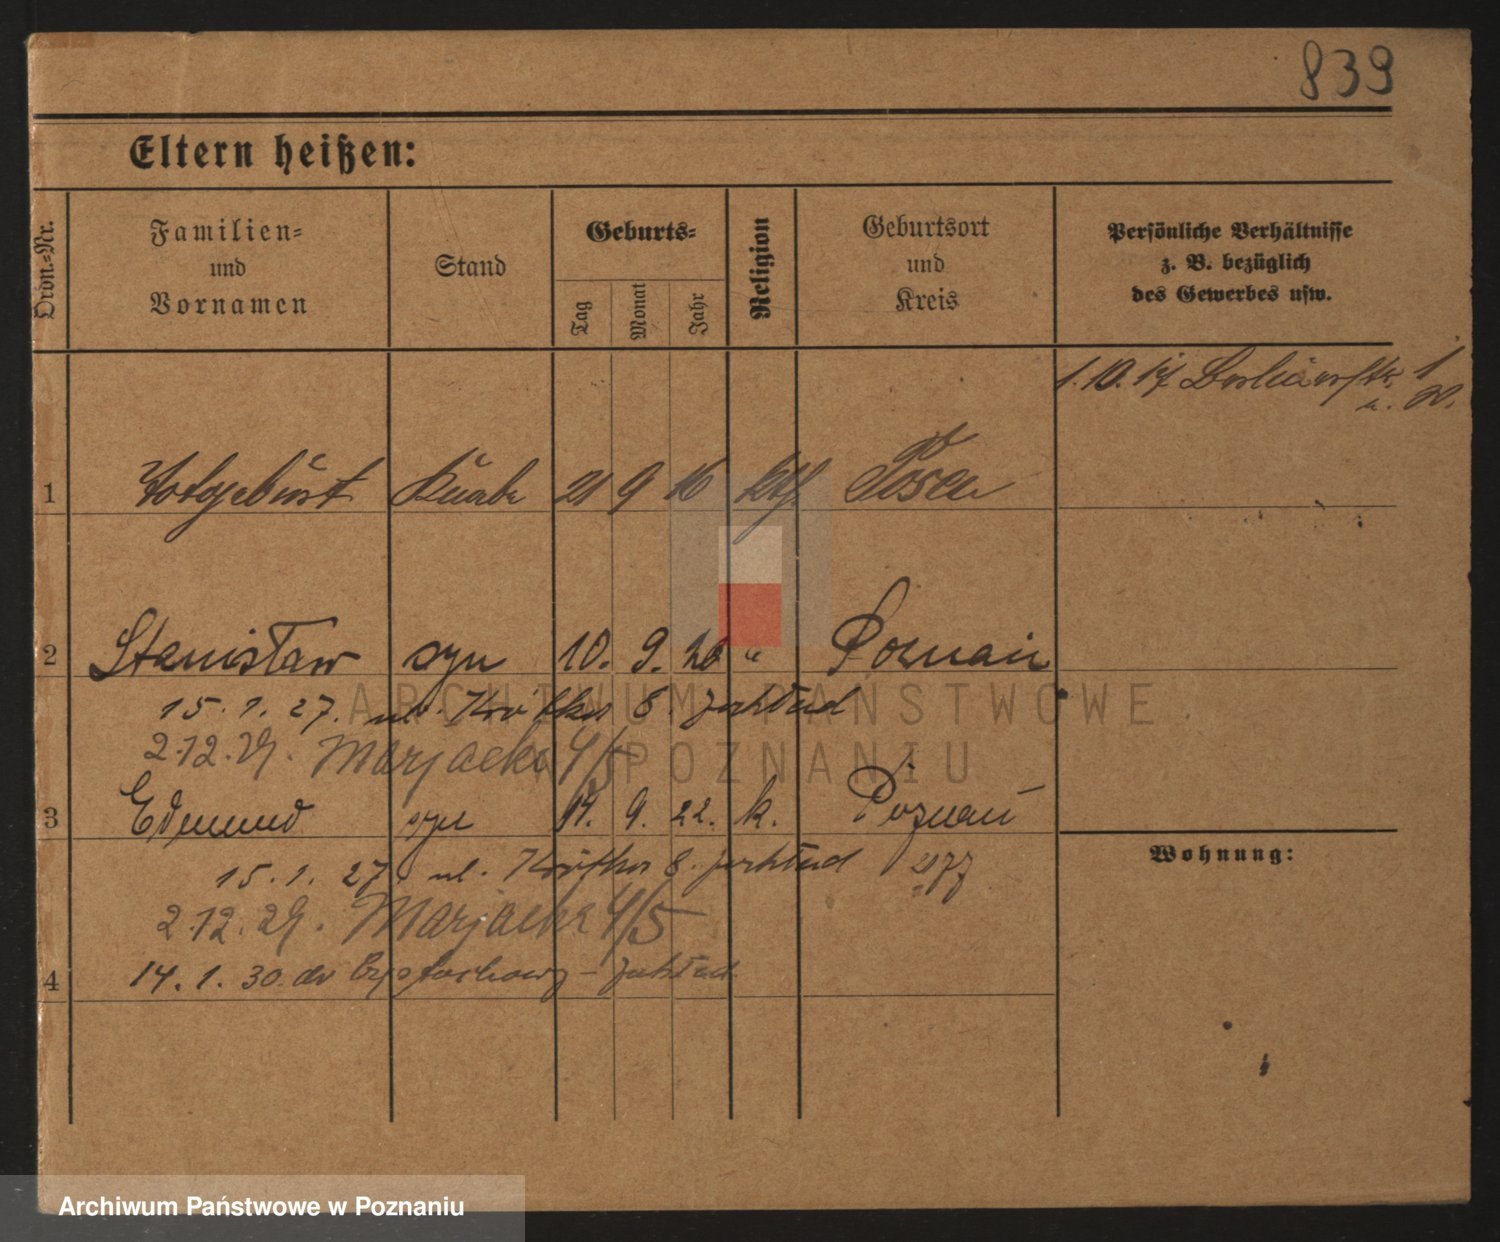 839
Eltern heißen:
Ordn.-Nr.
Familien-
und
Vornamen
Stand
Geburts-
Tag
Monat
Jahr
Religion
Geburtsort
und
Kreis
Persönliche Verhältnisse
z. B. bezüglich
des Gewerbes usw.
1. 10. 17 1
1 Totgeburt Knabe 21 9 16 kth. Posen
2 Stanisław syn 10. 9. 20 " Poznań
15. 1. 27. ul. Krótka 8.
2.12.29. Marjacka 4/5
3 Edmund syn 14. 9. 22. k. Poznań
Wohnung:
15. 1. 27. ul. Krótka 8.
2.12.29. Marjacka 4/5
4 14. 1. 30. do Częstochowy -
ARCHIWUM PAŃSTWOWE
W POZNANIU
Archiwum Państwowe w Poznaniu